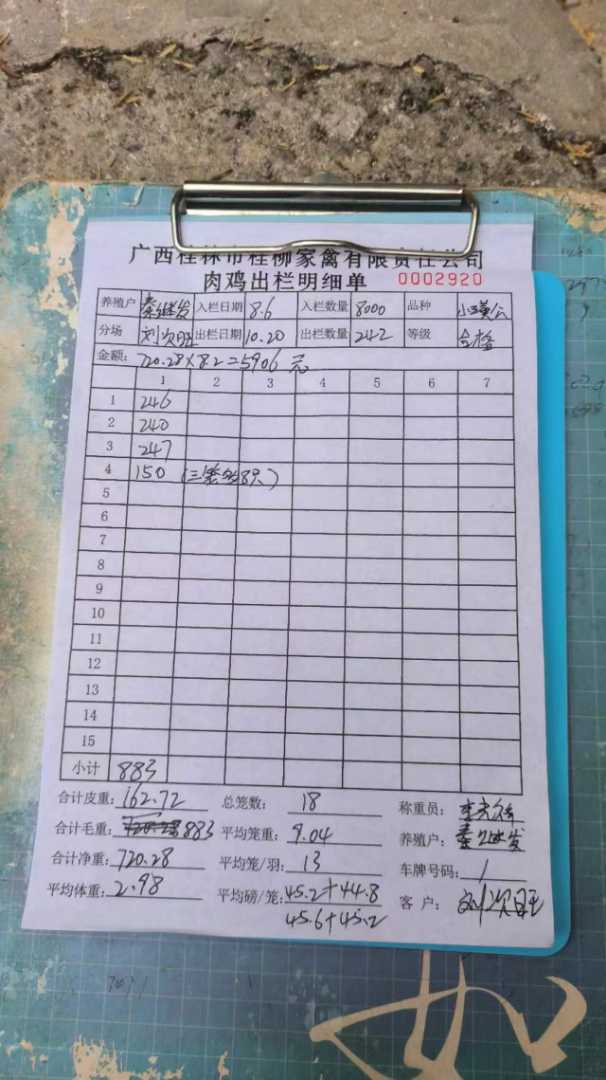 广西桂林市桂柳家禽有限责任公司
肉鸡出栏明细单 0002920
养殖户 秦继发 入栏日期 8.6 入栏数量 8000 品种
分场 刘次旺 出栏日期 10.20 出栏数量 242 等级 合格
金额: 720.28×8.2=5906元
1 2 3 4 5 6 7
1 246
2 240
3 247
4 150 (三笼多8只)
5
6
7
8
9
10
11
12
13
14
15
小计 883
合计皮重: 162.72 总笼数: 18 称重员:
合计毛重: 883 平均笼重: 9.04 养殖户: 秦继发
合计净重: 720.28 平均笼/羽: 13 车牌号码: /
平均体重: 2.98 平均磅/笼: 45.2+44.8 客户: 刘次旺
45.6+45.2